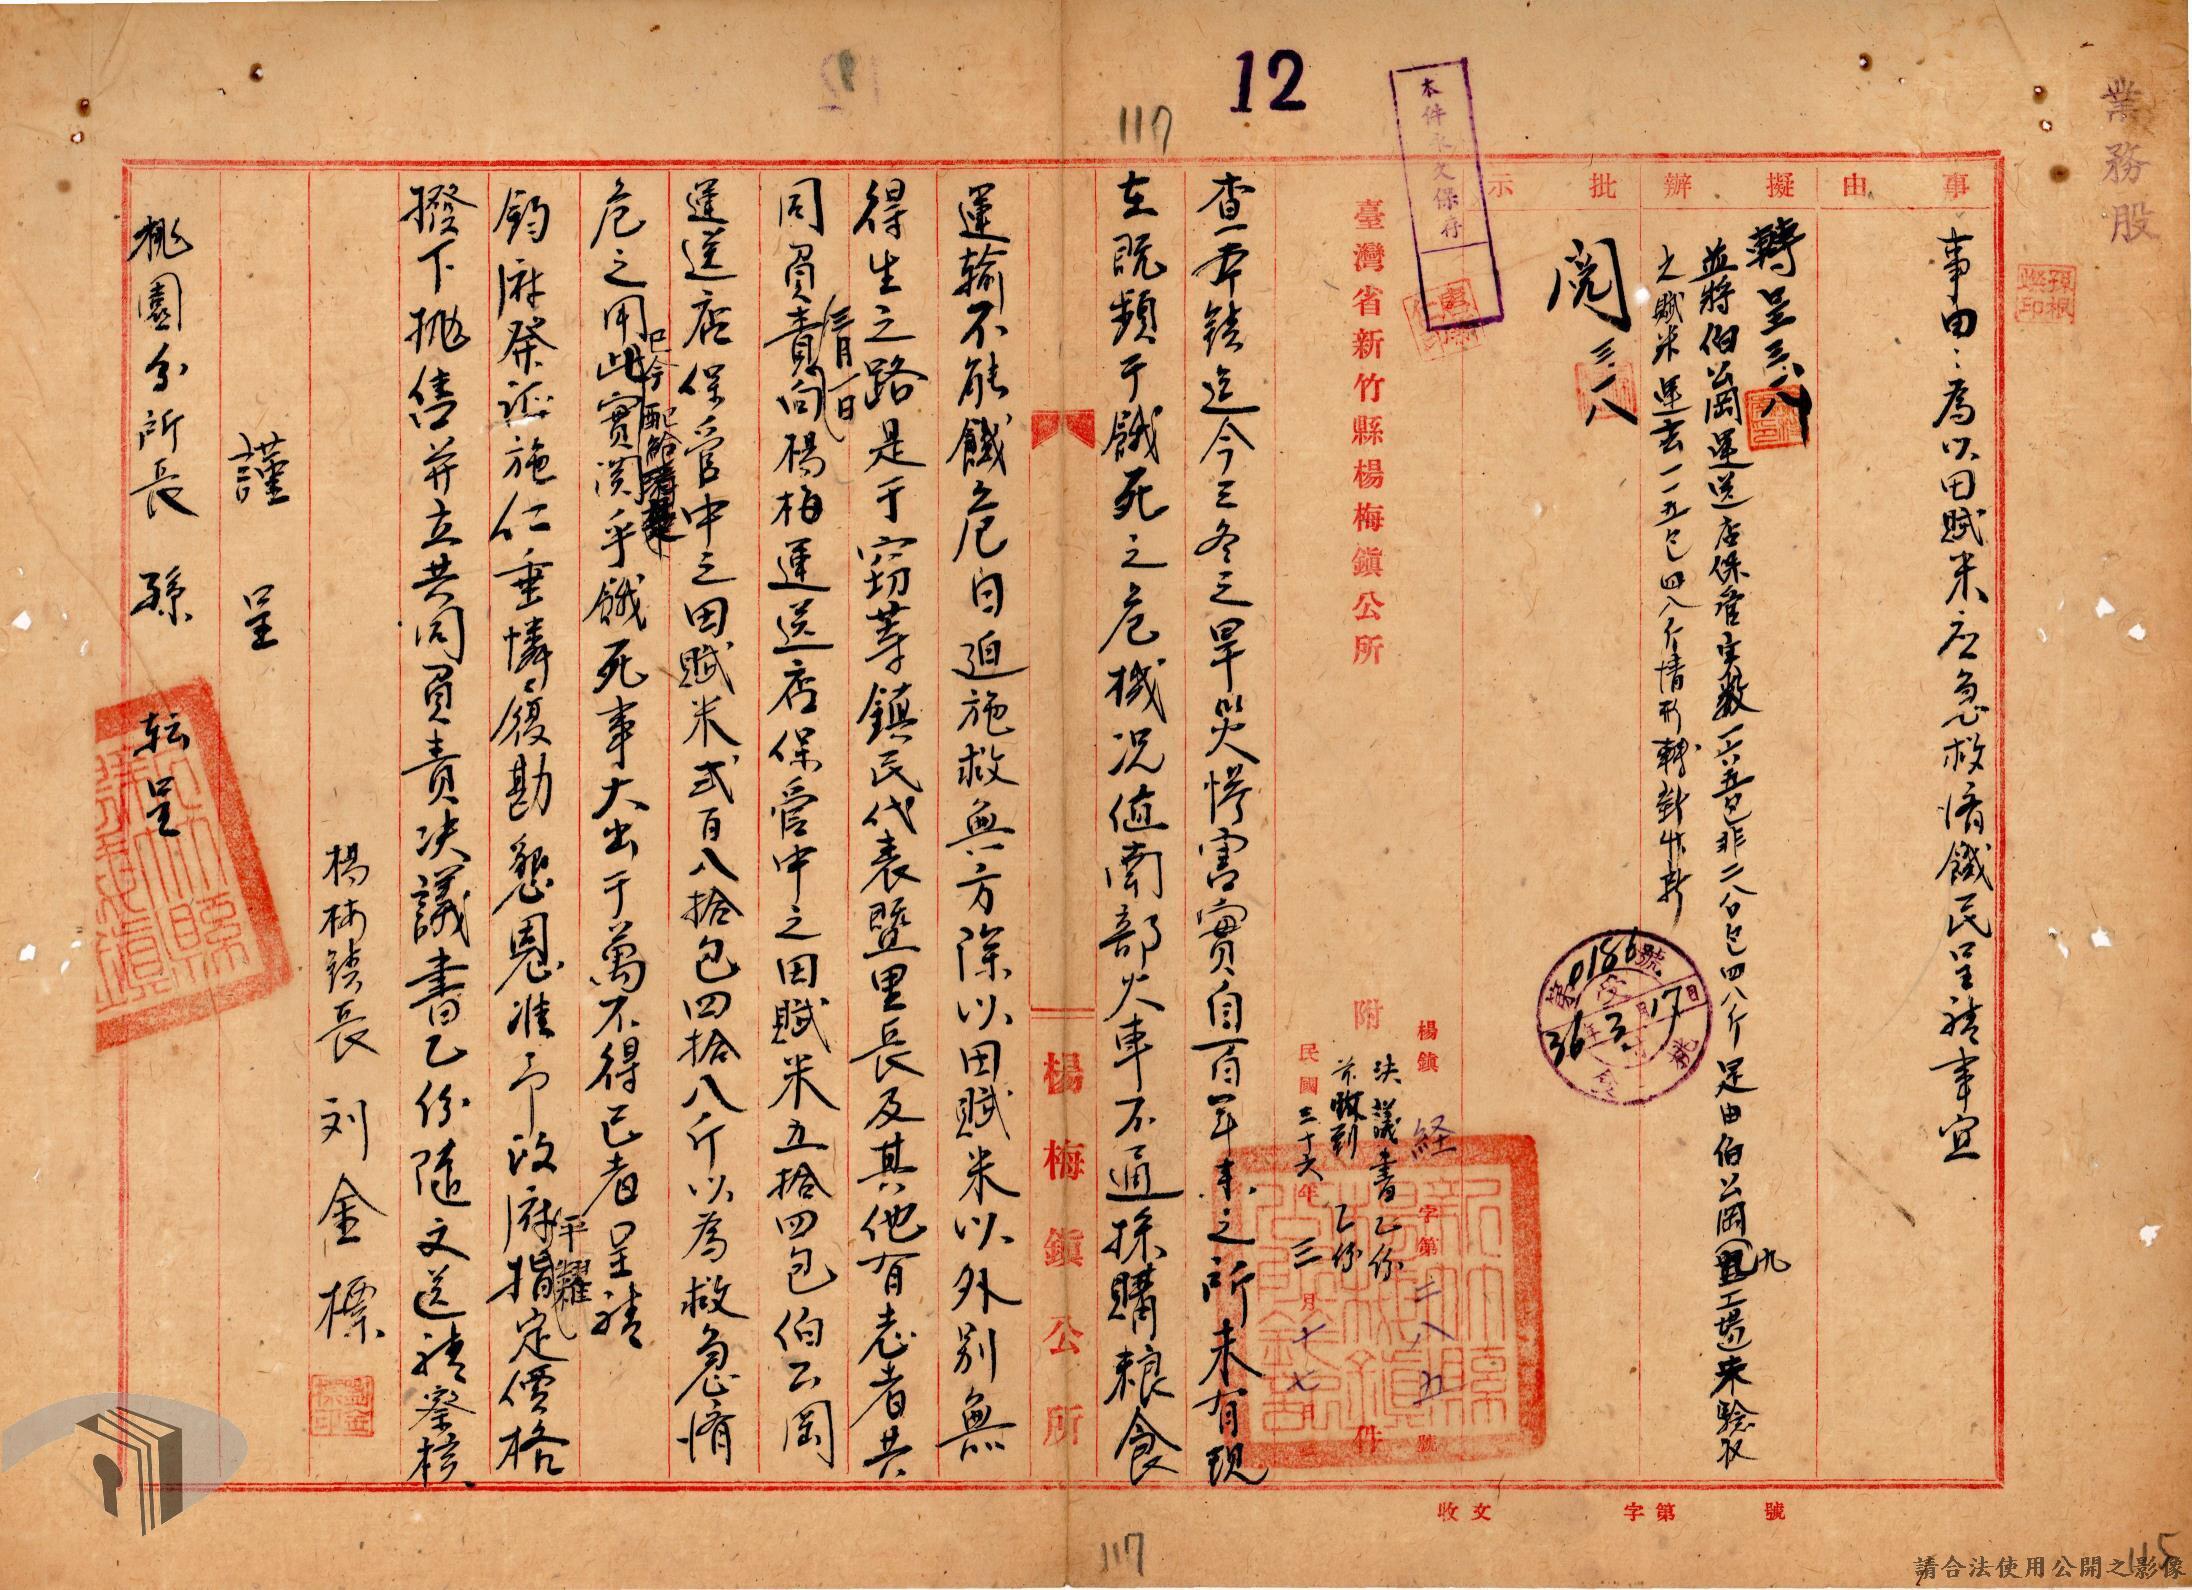 業務股
12
117
本件永久保存
事由
擬辦
批示
事由：為以田賦米応急救濟饑民呈請事宜
轉呈 三、八
並將伯公岡運送店保管実数一六五包非二八〇包四八斤足由伯公岡九工場来驗收
之賦米運去一一五包四八斤情形轉
閱 三、八
號
0186
36 3 17
臺灣省新竹縣楊梅鎮公所
附件
楊鎮経字第二八五號
決議書乙份
乙份
民國三十六年三月十七日
查本鎮迄今三冬之旱災慘害實自百年来之所未有現
在既頻于餓死之危機况值南部火車不通採購粮食
楊梅鎮公所
運輸不能饑危日迫施救無方除以田賦米以外別無
得生之路是于窃等鎮民代表暨里長及其他有志者共
同負責向楊梅運送店保管中之田賦米五拾四包伯公岡
三月一日
運送店保管中之田賦米弍百八拾包四拾八斤以為救急濟
危之用此實関乎餓死事大出于萬不得已者呈請
已今配給
鈞府察證施仁垂憐復勘懇恩准予政府指定價格
平糶
撥下拋售并立共同負責决議書乙份隨文送請察核
楊梅鎮長刘金標
謹呈
桃園分所長 孫 転呈
117
收文 字第 號
115
請合法使用公開之影像